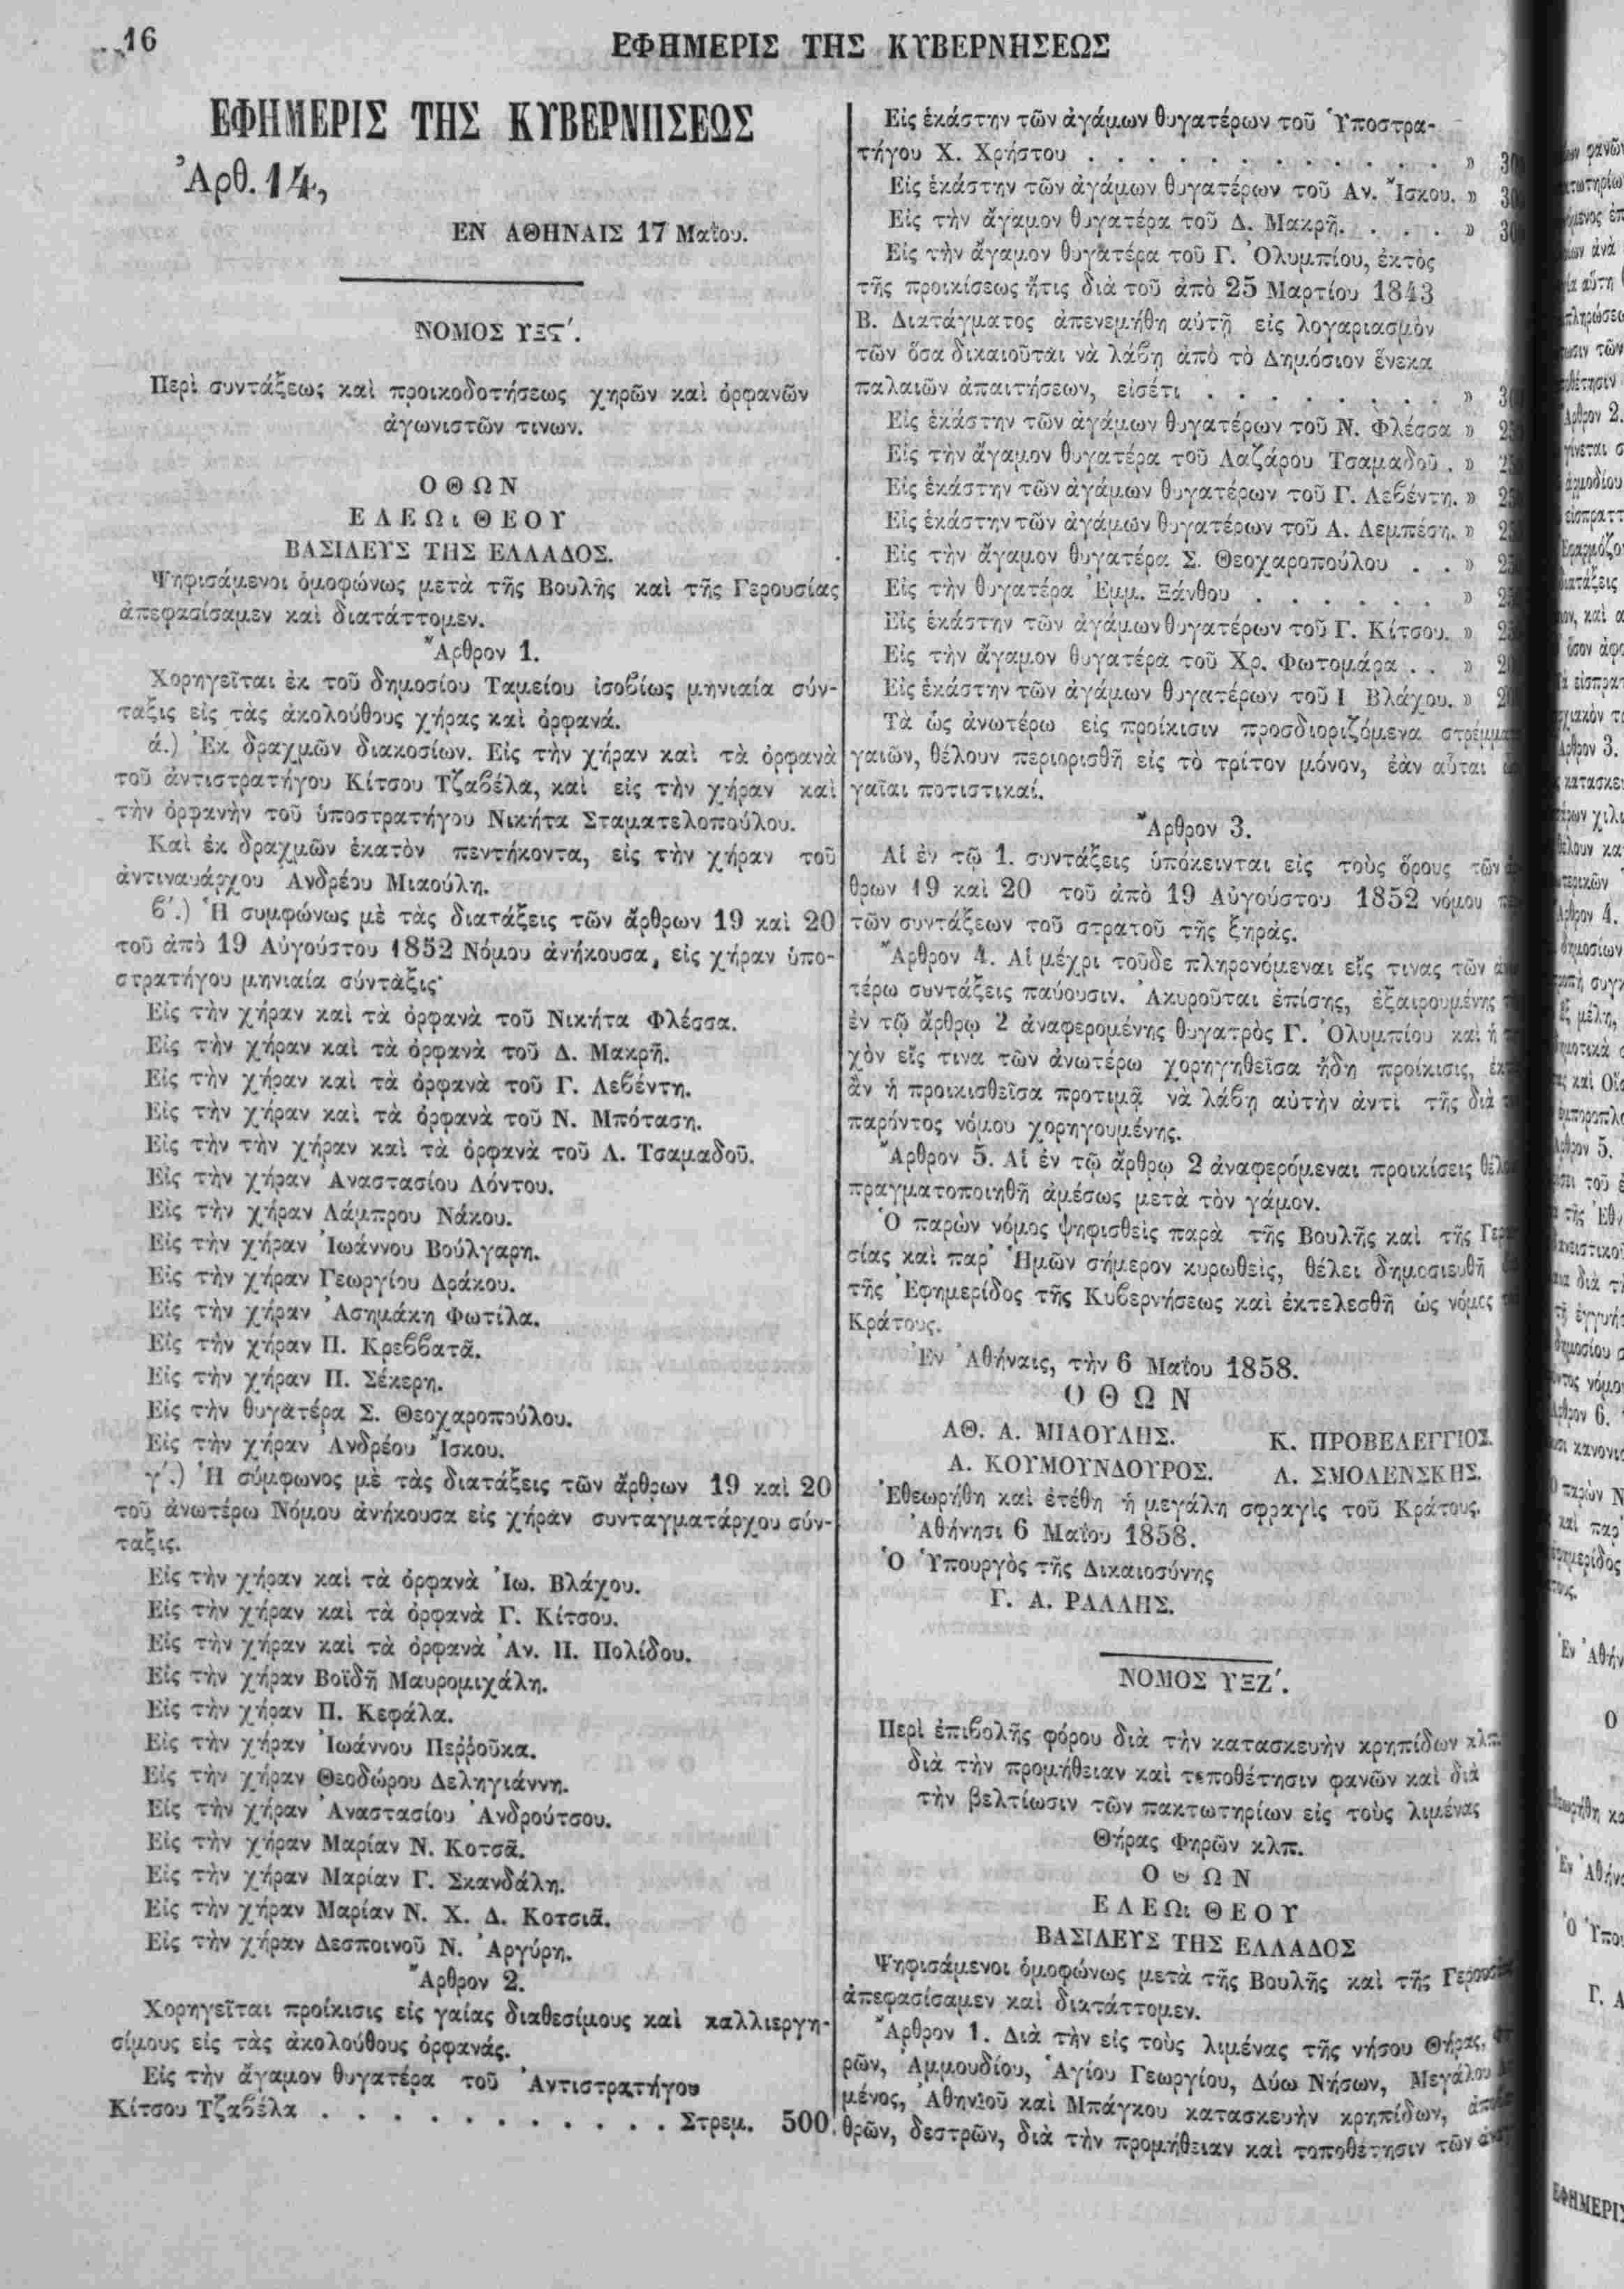 16
ΕΦΗΜΕΡΙΣ ΤΗΣ ΚΥΒΕΡΝΗΣΕΩΣ
ΕΦΗΜΕΡΙΣ ΤΗΣ ΚΥΒΕΡΝΗΣΕΩΣ
Ἀρθ. 14,
ΕΝ ΑΘΗΝΑΙΣ 17 Μαΐου.
ΝΟΜΟΣ ΥΞϚʹ.
Περὶ συντάξεως καὶ προικοδοτήσεως χηρῶν καὶ ὀρφανῶν
ἀγωνιστῶν τινων.
ΟΘΩΝ
ΕΛΕΩι ΘΕΟΥ
ΒΑΣΙΛΕΥΣ ΤΗΣ ΕΛΛΑΔΟΣ.
Ψηφισάμενοι ὁμοφώνως μετὰ τῆς Βουλῆς καὶ τῆς Γερουσίας
ἀπεφασίσαμεν καὶ διατάττομεν.
Ἄρθρον 1.
Χορηγεῖται ἐκ τοῦ δημοσίου Ταμείου ἰσοβίως μηνιαία σύν-
ταξις εἰς τὰς ἀκολούθους χήρας καὶ ὀρφανά.
ά.) Ἐκ δραχμῶν διακοσίων. Εἰς τὴν χήραν καὶ τὰ ὀρφανὰ
τοῦ ἀντιστρατήγου Κίτσου Τζαβέλα, καὶ εἰς τὴν χήραν καὶ
τὴν ὀρφανὴν τοῦ ὑποστρατήγου Νικήτα Σταματελοπούλου.
Καὶ ἐκ δραχμῶν ἑκατὸν πεντήκοντα, εἰς τὴν χήραν τοῦ
ἀντιναυάρχου Ἀνδρέου Μιαούλη.
βʹ.) Ἡ συμφώνως μὲ τὰς διατάξεις τῶν ἄρθρων 19 καὶ 20
τοῦ ἀπὸ 19 Αὐγούστου 1852 Νόμου ἀνήκουσα, εἰς χήραν ὑπο-
στρατήγου μηνιαία σύνταξις·
Εἰς τὴν χήραν καὶ τὰ ὀρφανὰ τοῦ Νικήτα Φλέσσα.
Εἰς τὴν χήραν καὶ τὰ ὀρφανὰ τοῦ Δ. Μακρῆ.
Εἰς τὴν χήραν καὶ τὰ ὀρφανὰ τοῦ Γ. Λεβέντη.
Εἰς τὴν χήραν καὶ τὰ ὀρφανὰ τοῦ Ν. Μπόταση.
Εἰς τὴν τὴν χήραν καὶ τὰ ὀρφανὰ τοῦ Λ. Τσαμαδοῦ.
Εἰς τὴν χήραν Αναστασίου Λόντου.
Εἰς τὴν χήραν Λάμπρου Νάκου.
Εἰς τὴν χήραν Ἰωάννου Βούλγαρη.
Εἰς τὴν χήραν Γεωργίου Δράκου.
Εἰς τὴν χήραν Ἀσημάκη Φωτίλα.
Εἰς τὴν χήραν Π. Κρεββατᾶ.
Εἰς τὴν χήραν Π. Σέκερη.
Εἰς τὴν θυγατέρα Σ. Θεοχαροπούλου.
Εἰς τὴν χήραν Ἀνδρέου Ἴσκου.
γʹ.) Ἡ σύμφωνος μὲ τὰς διατάξεις τῶν ἄρθρων 19 καὶ 20
τοῦ ἀνωτέρω Νόμου ἀνήκουσα εἰς χήραν συνταγματάρχου σύν-
ταξις.
Εἰς τὴν χήραν καὶ τὰ ὀρφανὰ Ἰω. Βλάχου.
Εἰς τὴν χήραν καὶ τὰ ὀρφανὰ Γ. Κίτσου.
Εἰς τὴν χήραν καὶ τὰ ὀρφανὰ Ἀν. Π. Πολίδου.
Εἰς τὴν χήραν Βοϊδῆ Μαυρομιχάλη.
Εἰς τὴν χήραν Π. Κεφάλα.
Εἰς τὴν χήραν Ἰωάννου Περῤοῦκα.
Εἰς τὴν χήραν Θεοδώρου Δεληγιάννη.
Εἰς τὴν χήραν Ἀναστασίου Ἀνδρούτσου.
Εἰς τὴν χήραν Μαρίαν Ν. Κοτσᾶ.
Εἰς τὴν χήραν Μαρίαν Γ. Σκανδάλη.
Εἰς τὴν χήραν Μαρίαν Ν. Χ. Δ. Κοτσιᾶ.
Εἰς τὴν χήραν Δεσποινοῦ Ν. Ἀργύρη.
Ἄρθρον 2.
Χορηγεῖται προίκισις εἰς γαίας διαθεσίμους καὶ καλλιεργη-
σίμους εἰς τὰς ἀκολούθους ὀρφανάς.
Εἰς τὴν ἄγαμον θυγατέρα τοῦ Ἀντιστρατήγου
Κίτσου Τζαβέλα . . . . . . . . . . . . Στρεμ. 500.
Εἰς ἑκάστην τῶν ἀγάμων θυγατέρων τοῦ Ὑποστρα-
τήγου Χ. Χρήστου . . . . . . . . . . . . »
Εἰς ἑκάστην τῶν ἀγάμων θυγατέρων τοῦ Αν. Ἴσκου. »
Εἰς τὴν ἄγαμον θυγατέρα τοῦ Δ. Μακρῆ. . . . . »
Εἰς τὴν ἄγαμον θυγατέρα τοῦ Γ. Ὀλυμπίου, ἐκτὸς
τῆς προικίσεως ἥτις διὰ τοῦ ἀπὸ 25 Μαρτίου 1843
Β. Διατάγματος ἀπενεμήθη αὐτῇ εἰς λογαριασμὸν
τῶν ὅσα δικαιοῦται νὰ λάβῃ ἀπὸ τὸ Δημόσιον ἕνεκα
παλαιῶν ἀπαιτήσεων, εἰσέτι . . . . . . . . »
Εἰς ἑκάστην τῶν ἀγάμων θυγατέρων τοῦ Ν. Φλέσσα »
Εἰς τὴν ἄγαμον θυγατέρα τοῦ Λαζάρου Τσαμαδοῦ . »
Εἰς ἑκάστην τῶν ἀγάμων θυγατέρων τοῦ Γ. Λεβέντη. »
Εἰς ἑκάστην τῶν ἀγάμων θυγατέρων τοῦ Α. Λεμπέση. »
Εἰς τὴν ἄγαμον θυγατέρα Σ. Θεοχαροπούλου . . »
Εἰς τὴν θυγατέρα Ἐμμ. Ξάνθου . . . . . . »
Εἰς ἑκάστην τῶν ἀγάμων θυγατέρων τοῦ Γ. Κίτσου. »
Εἰς τὴν ἄγαμον θυγατέρα τοῦ Χρ. Φωτομάρα . . »
Εἰς ἑκάστην τῶν ἀγάμων θυγατέρων τοῦ Ι Βλάχου. »
Τὰ ὡς ἀνωτέρω εἰς προίκισιν προσδιοριζόμενα
γαιῶν, θέλουν περιορισθῆ εἰς τὸ τρίτον μόνον, ἐὰν αὗται
γαῖαι ποτιστικαί.
Ἄρθρον 3.
Αἱ ἐν τῷ 1. συντάξεις ὑπόκεινται εἰς τοὺς ὅρους τῶν
θρων 19 καὶ 20 τοῦ ἀπὸ 19 Αὐγούστου 1852 νόμου
τῶν συντάξεων τοῦ στρατοῦ τῆς ξηρᾶς.
Ἄρθρον 4. Αἱ μέχρι τοῦδε πληρονόμεναι εἴς τινας τῶν
τέρω συντάξεις παύουσιν. Ἀκυροῦται ἐπίσης, ἐξαιρουμένης
ἐν τῷ ἄρθρῳ 2 ἀναφερομένης θυγατρὸς Γ. Ὀλυμπίου καὶ ἡ
χὸν εἴς τινα τῶν ἀνωτέρω χορηγηθεῖσα ἤδη προίκισις,
ἂν ἡ προικισθεῖσα προτιμᾷ νὰ λάβῃ αὐτὴν ἀντὶ τῆς διὰ
παρόντος νόμου χορηγουμένης.
Ἄρθρον 5. Αἱ ἐν τῷ ἄρθρῳ 2 ἀναφερόμεναι προικίσεις
πραγματοποιηθῆ ἀμέσως μετὰ τὸν γάμον.
Ὁ παρὼν νόμος ψηφισθεὶς παρὰ τῆς Βουλῆς καὶ τῆς
σίας καὶ παρ᾽ Ἡμῶν σήμερον κυρωθεὶς, θέλει δημοσιευθῆ
τῆς Ἐφημερίδος τῆς Κυβερνήσεως καὶ ἐκτελεσθῆ ὡς νόμος
Κράτους.
Ἐν Ἀθήναις, τὴν 6 Μαΐου 1858.
ΟΘΩΝ
ΑΘ. Α. ΜΙΑΟΥΛΗΣ. Κ. ΠΡΟΒΕΛΕΓΓΙΟΣ.
Α. ΚΟΥΜΟΥΝΔΟΥΡΟΣ. Λ. ΣΜΟΛΕΝΣΚΗΣ.
Ἐθεωρήθη καὶ ἐτέθη ἡ μεγάλη σφραγὶς τοῦ Κράτους.
Ἀθήνησι 6 Μαΐου 1858.
Ὁ Ὑπουργὸς τῆς Δικαιοσύνης
Γ. Α. ΡΑΛΛΗΣ.
ΝΟΜΟΣ ΥΞΖʹ.
Περὶ ἐπιβολῆς φόρου διὰ τὴν κατασκευὴν κρηπίδων κλπ.
διὰ τὴν προμήθειαν καὶ τοποθέτησιν φανῶν καὶ διὰ
τὴν βελτίωσιν τῶν πακτωτηρίων εἰς τοὺς λιμένας
Θήρας Φηρῶν κλπ.
ΟΘΩΝ
ΕΛΕΩι ΘΕΟΥ
ΒΑΣΙΛΕΥΣ ΤΗΣ ΕΛΛΑΔΟΣ
Ψηφισάμενοι ὁμοφώνως μετὰ τῆς Βουλῆς καὶ τῆς
ἀπεφασίσαμεν καὶ διατάττομεν.
Ἄρθρον 1. Διὰ τὴν εἰς τοὺς λιμένας τῆς νήσου Θήρας,
ρῶν, Ἀμμουδίου, Ἁγίου Γεωργίου, Δύω Νήσων, Μεγάλου
μένος, Ἀθηνιοῦ καὶ Μπάγκου κατασκευὴν κρηπίδων,
θρῶν, δεστρῶν, διὰ τὴν προμήθειαν καὶ τοποθέτησιν τῶν